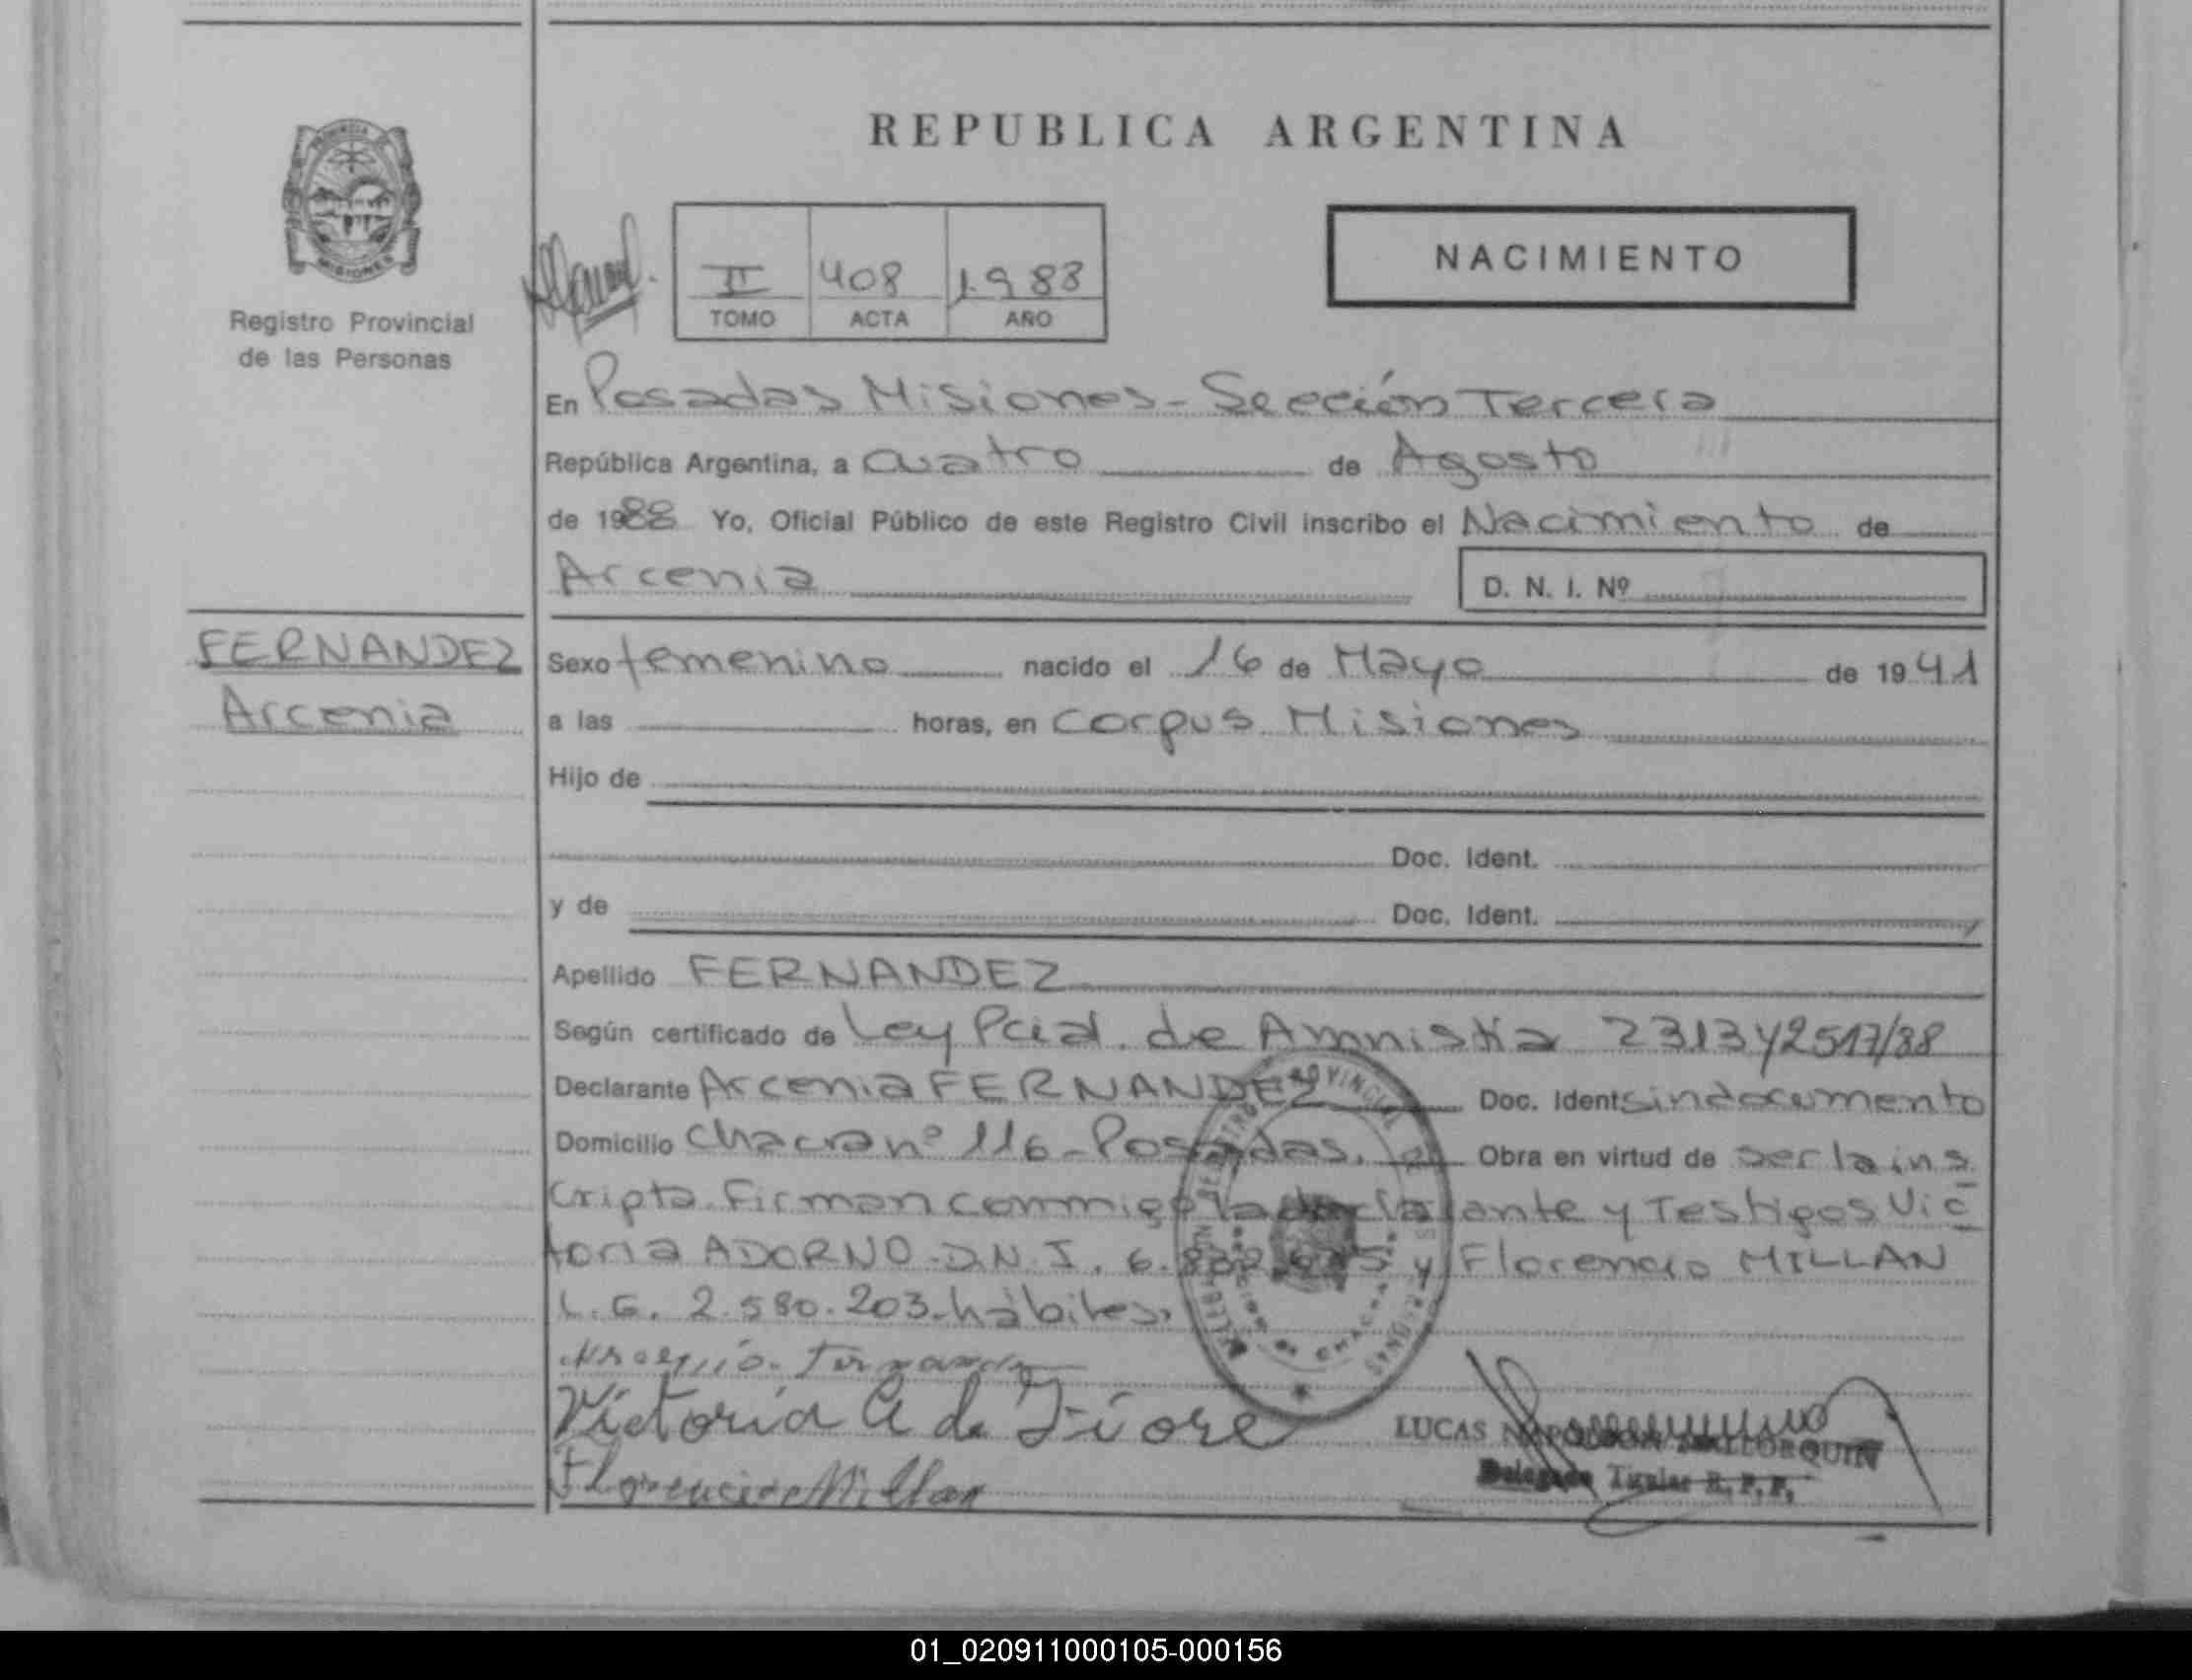 REPUBLICA ARGENTINA
NACIMIENTO
II 408 1988
TOMO ACTA AÑO
Registro Provincial
de las Personas
En Posadas Misiones - Sección Tercera
República Argentina, a cuatro de Agosto
de 1988 Yo, Oficial Público de este Registro Civil inscribo el Nacimiento de
Arcenia
D. N. I. Nº
FERNANDEZ
Arcenia
Sexo femenino nacido el 16 de Mayo de 1941
a las horas, en Corpus Misiones
Hijo de
Doc. Ident.
y de Doc. Ident.
Apellido FERNANDEZ
Según certificado de Ley Pcial. de Amnistia 2313 y 2517/88
Declarante Arcenia FERNANDEZ Doc. Ident sin documento
Domicilio Chacra nº 116 - Posadas. Obra en virtud de ser la ins
cripta. Firman conmigo la declarante y Testigos Vic
toria ADORNO - D.N.I. 6. y Florencio MILLAN
2.580.203 - hábiles.
Victoria A de Fiore
Florencio Millan
LUCAS NAPOLEON MALLORQUIN
Delegado Titular R. P. P.
01_020911000105-000156